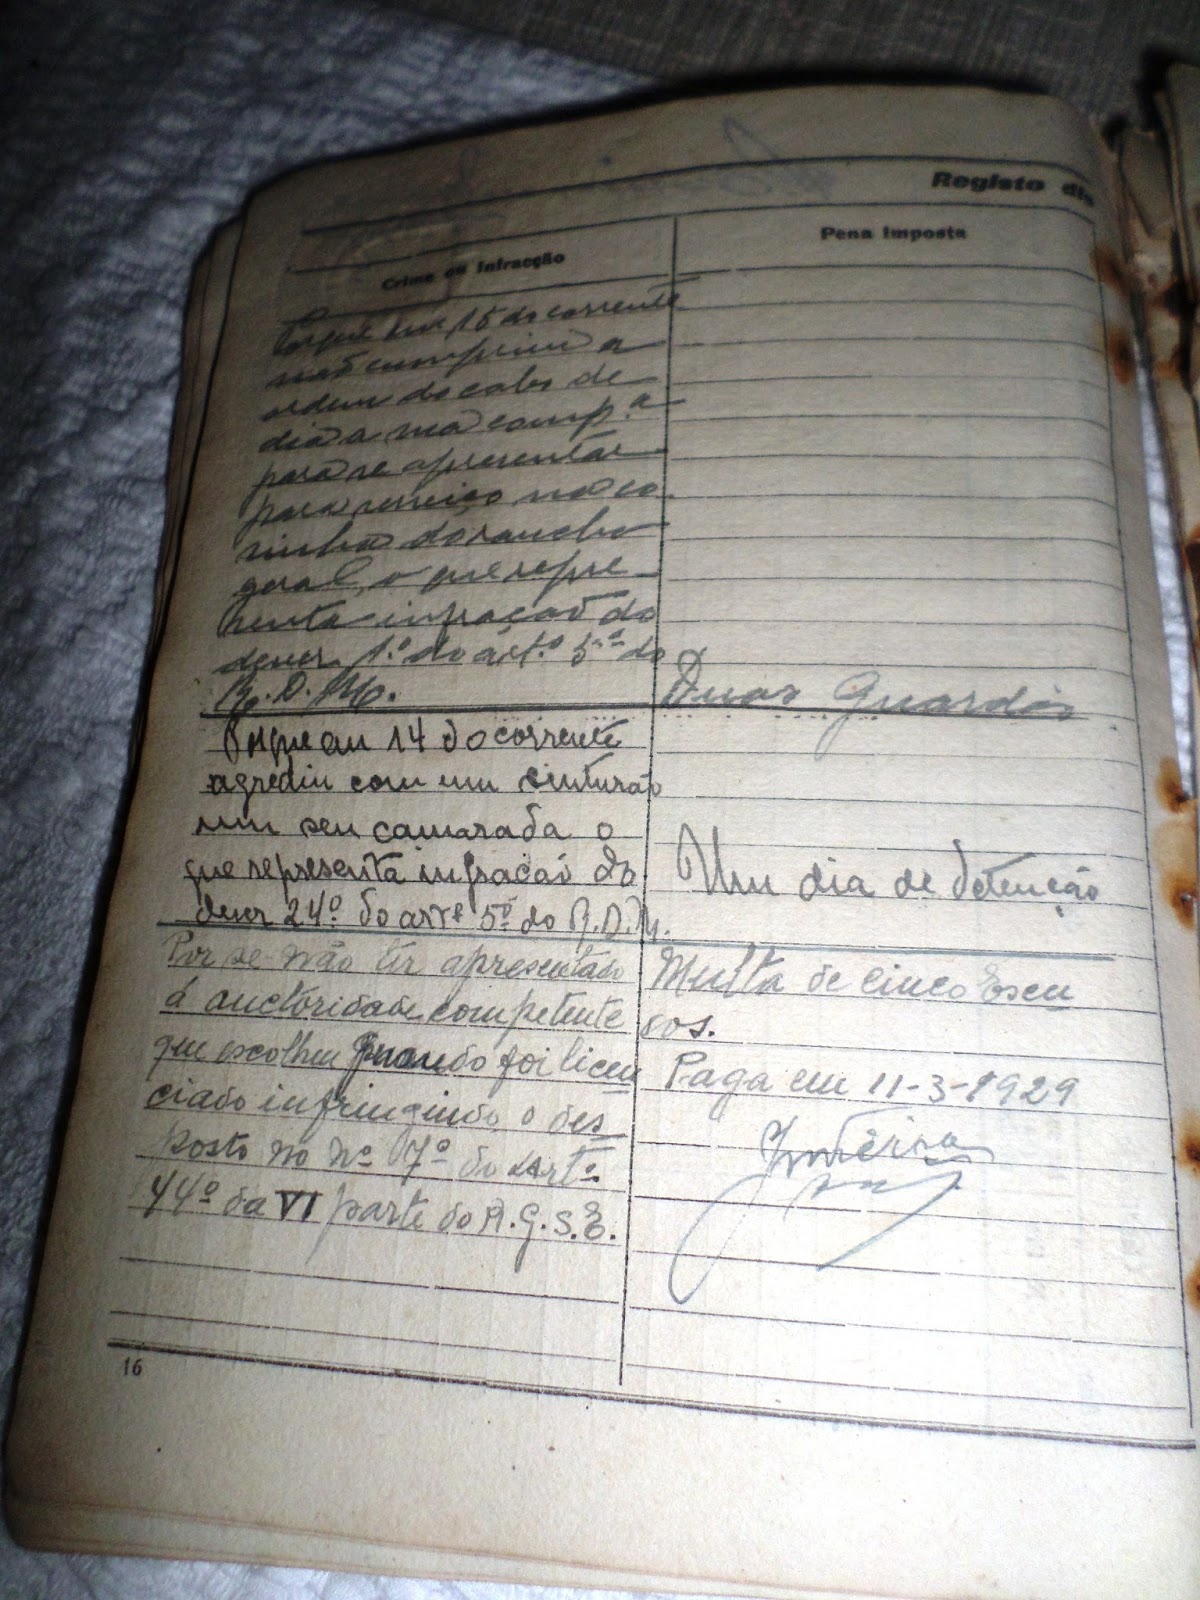 Registo dis
Crime ou Infracção
Pena Imposta
Porque em 15 do corrente
não cumpriu a
ordem do cabo de
dia a sua comp.a
para se apresentar
para serviço na co
sinha do rancho
geral, o que repre
senta infração do
dever 1.º do art.º 5º do
R. D. M.
Duas Guardas
Porque em 14 do corrente
agrediu com um sinturão
um seu camarada o
que representa infracção do
dever 24º do artº 5º do R.D.M.
Um dia de detenção
Por se não ter apresentado
á auctoridade competente
que escolheu quando foi licen
ciado infringindo o des
posto no nº 7º do artº
44º da VI parte do R.G.S.E.
Multa de cinco Escu
dos.
Paga em 11-3-1929
16